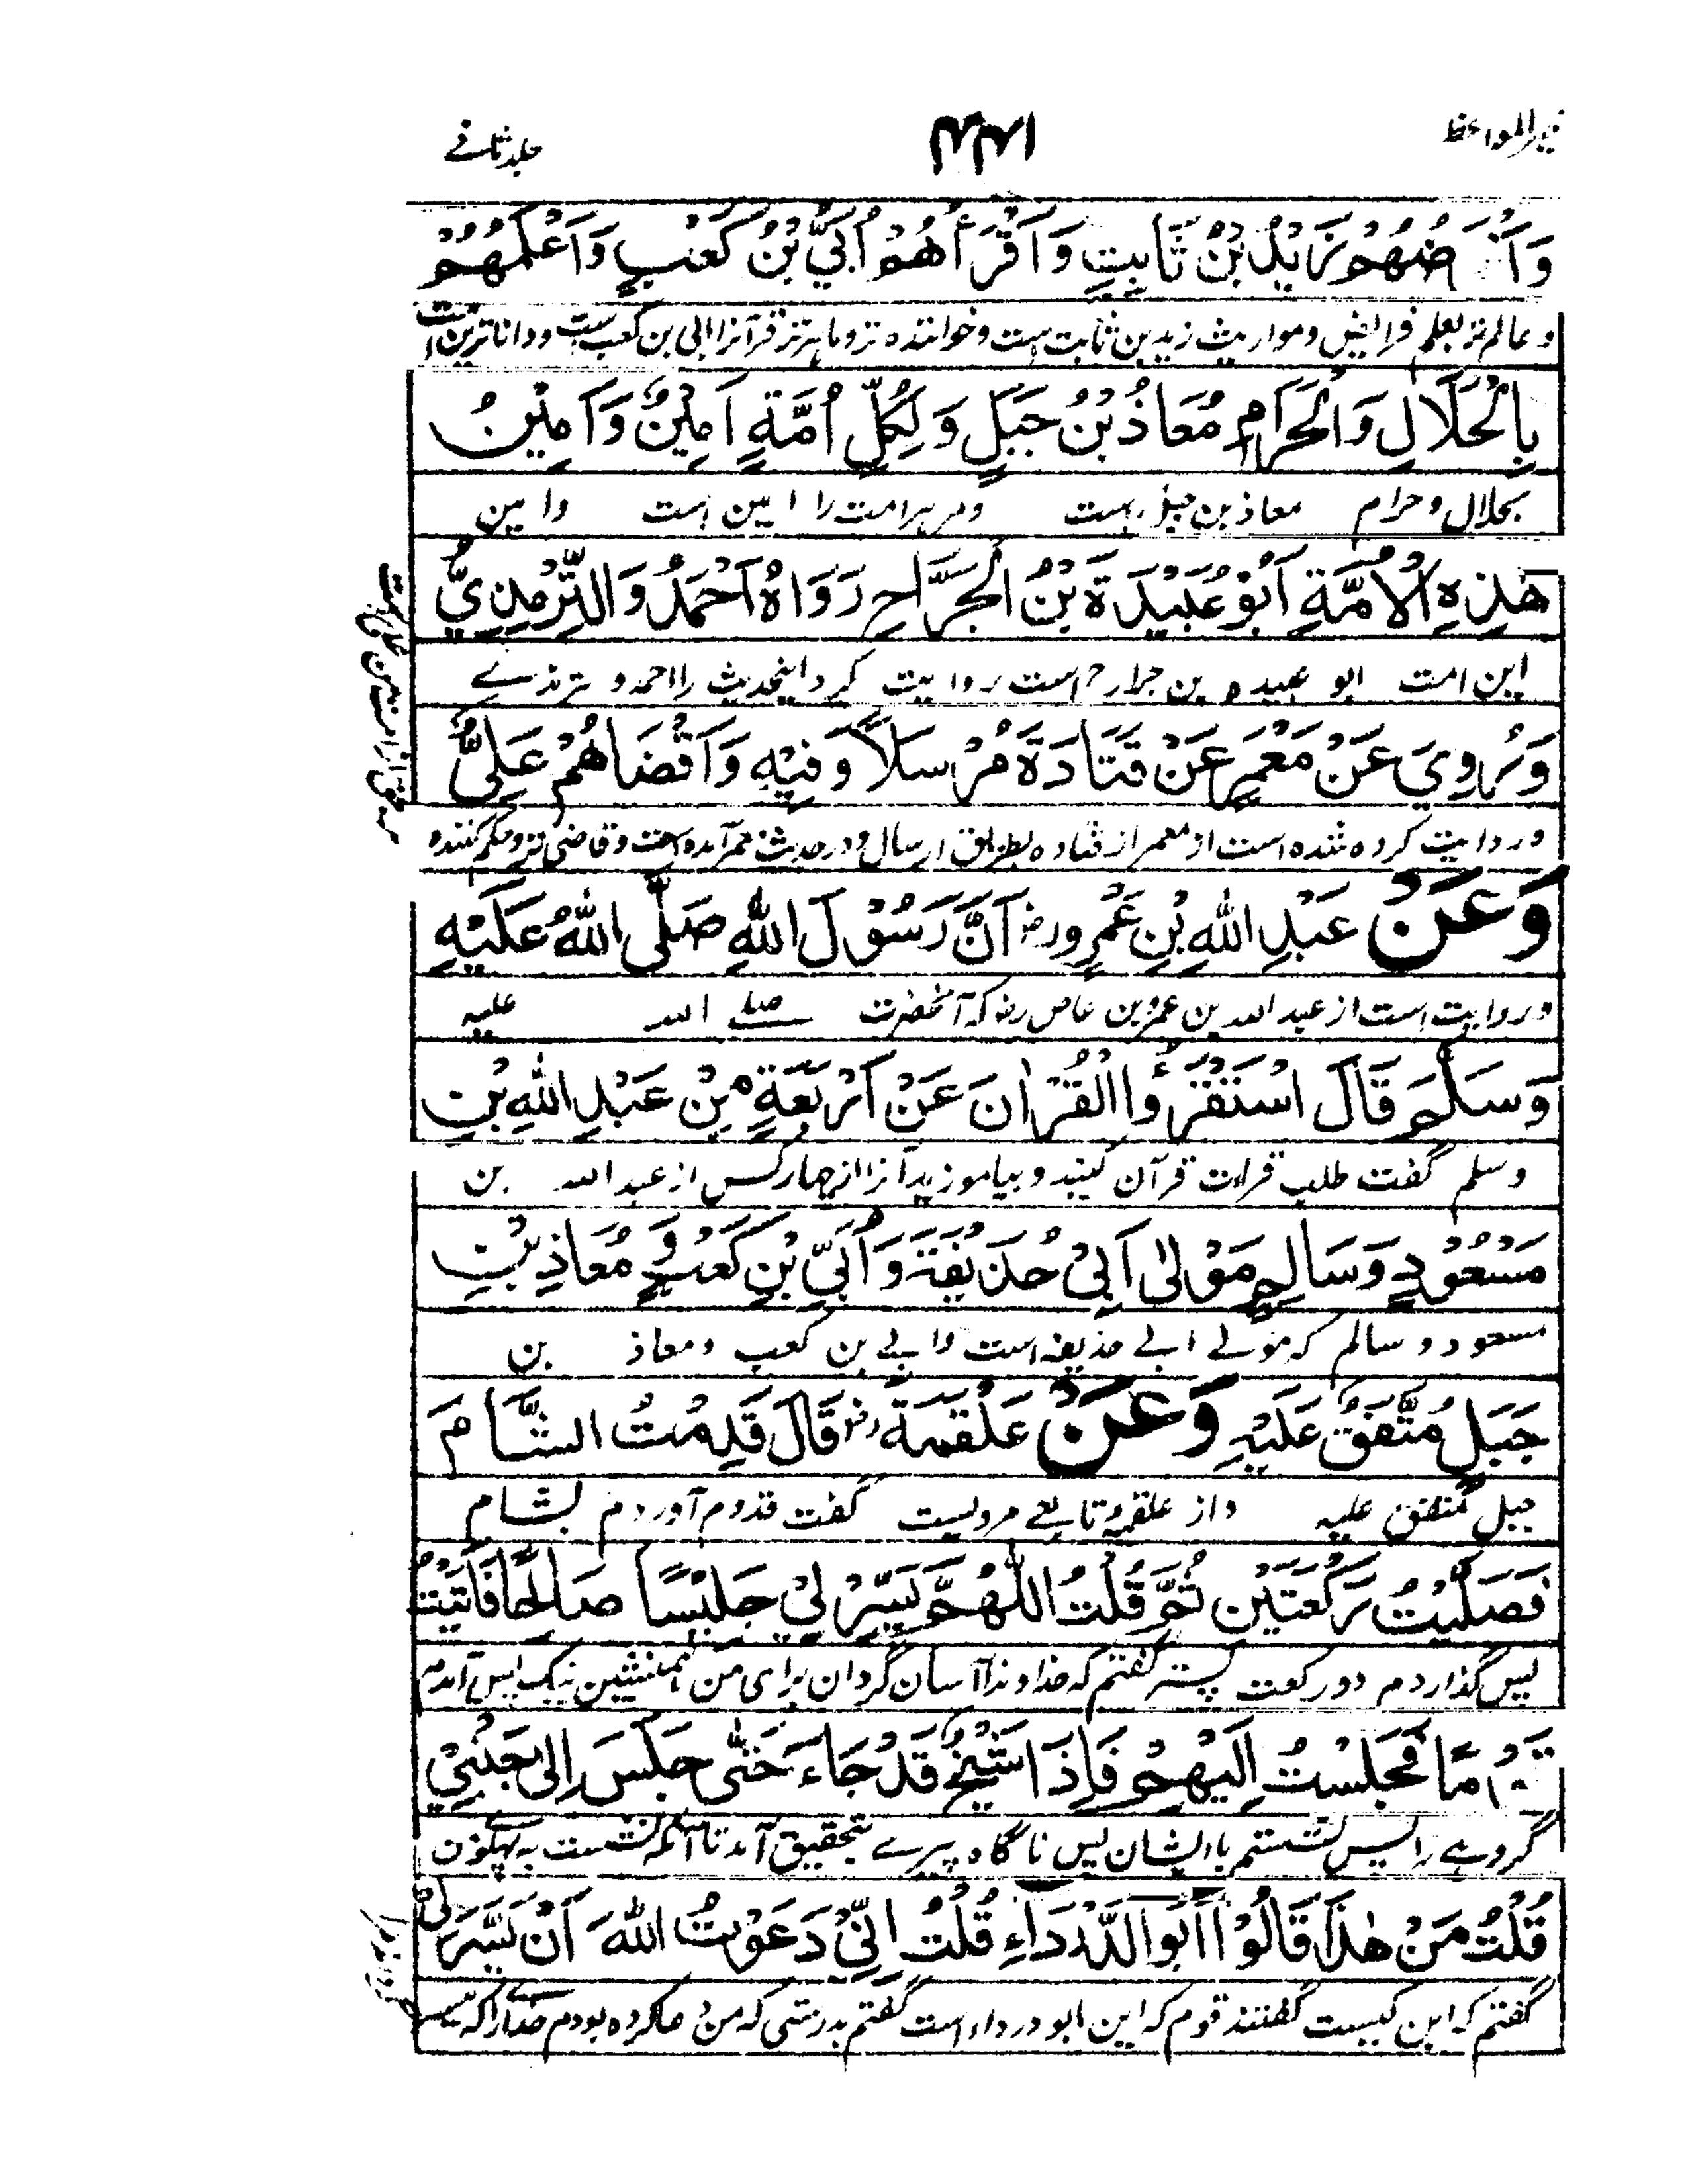 خير المواعظ
جلد ثانے
وَأَفْرَضُهُمْ زَيْدُ بْنُ ثَابِتٍ وَأَقْرَأُهُمْ أُبَيُّ بْنُ كَعْبٍ وَأَعْلَمُهُمْ
و عالم تر بعلم فرایض و مواریث زید بن ثابت است و خواننده تر و ماهرتر قرآنرا ابی بن کعب است و داناترین
بِالْحَلَالِ وَالْحَرَامِ مُعَاذُ بْنُ جَبَلٍ وَلِكُلِّ أُمَّةٍ أَمِيْنٌ وَأَمِيْنُ
بحلال و حرام معاذ بن جبل است و مر هر امت را امین است و امین
هٰذِهِ الْأُمَّةِ أَبُوْ عُبَيْدَةَ بْنُ الْجَرَّاحِ رَوَاهُ أَحْمَدُ وَالتِّرْمِذِيُّ
این امت ابو عبیده بن جراح است روایت کرد اینحدیث را احمد و ترمذے
وَرُوِيَ عَنْ مَعْمَرٍ عَنْ قَتَادَةَ مُرْسَلًا وَفِيْهِ وَأَقْضَاهُمْ عَلِيٌّ
و روایت کرده شده است از معمر از قتاده بطریق ارسال و در حدیث معمر آمده است و قاضی تر و حکم کننده
وَعَنْ عَبْدِ اللّٰهِ بْنِ عَمْرٍو رض أَنَّ رَسُوْلَ اللّٰهِ صَلَّى اللّٰهُ عَلَيْهِ
و روایت است از عبد الله بن عمرو بن عاص رض که آنحضرت صلے الله علیه
وَسَلَّمَ قَالَ اسْتَقْرِءُوا الْقُرْاٰنَ عَنْ أَرْبَعَةٍ مِنْ عَبْدِ اللّٰهِ بْنِ
وسلم گفت طلب قراءت قرآن کنید و بیاموزید آنرا از چهار کس از عبد الله بن
مَسْعُوْدٍ وَسَالِمٍ مَوْلٰى أَبِيْ حُذَيْفَةَ وَأُبَيِّ بْنِ كَعْبٍ وَّ مُعَاذِ بْنِ
مسعود و سالم که مولے ابے حذیفه است و ابے بن کعب و معاذ بن
جَبَلٍ مُتَّفَقٌ عَلَيْهِ وَعَنْ عَلْقَمَةَ رض قَالَ قَدِمْتُ الشَّامَ
جبل متفق علیه و از علقمه تابعے مرویست گفت قدوم آوردم بشام
فَصَلَّيْتُ رَكْعَتَيْنِ ثُمَّ قُلْتُ اللّٰهُمَّ يَسِّرْ لِيْ جَلِيْسًا صَالِحًا فَأَتَيْتُ
پس گذاردم دو رکعت پستر گفتم که خداوندا آسان گردان برای من همنشین نیک پس آمدم
قَوْمًا فَجَلَسْتُ إِلَيْهِمْ فَإِذَا شَيْخٌ قَدْ جَاءَ حَتّٰى جَلَسَ إِلٰى جَنْبِيْ
گروہے را پس نشستم با ایشان پس ناگاه پیرے بتحقیق آمد تا آنکه نشست به پهلوے من
قُلْتُ مَنْ هٰذَا قَالُوْا أَبُو الدَّرْدَاءِ قُلْتُ إِنِّيْ دَعَوْتُ اللّٰهَ أَنْ يُّيَسِّرَ لِيْ
گفتم که این کیست گفتند قوم که این ابو درداء است گفتم بدرستی که من دعا کرده بودم خدا را که